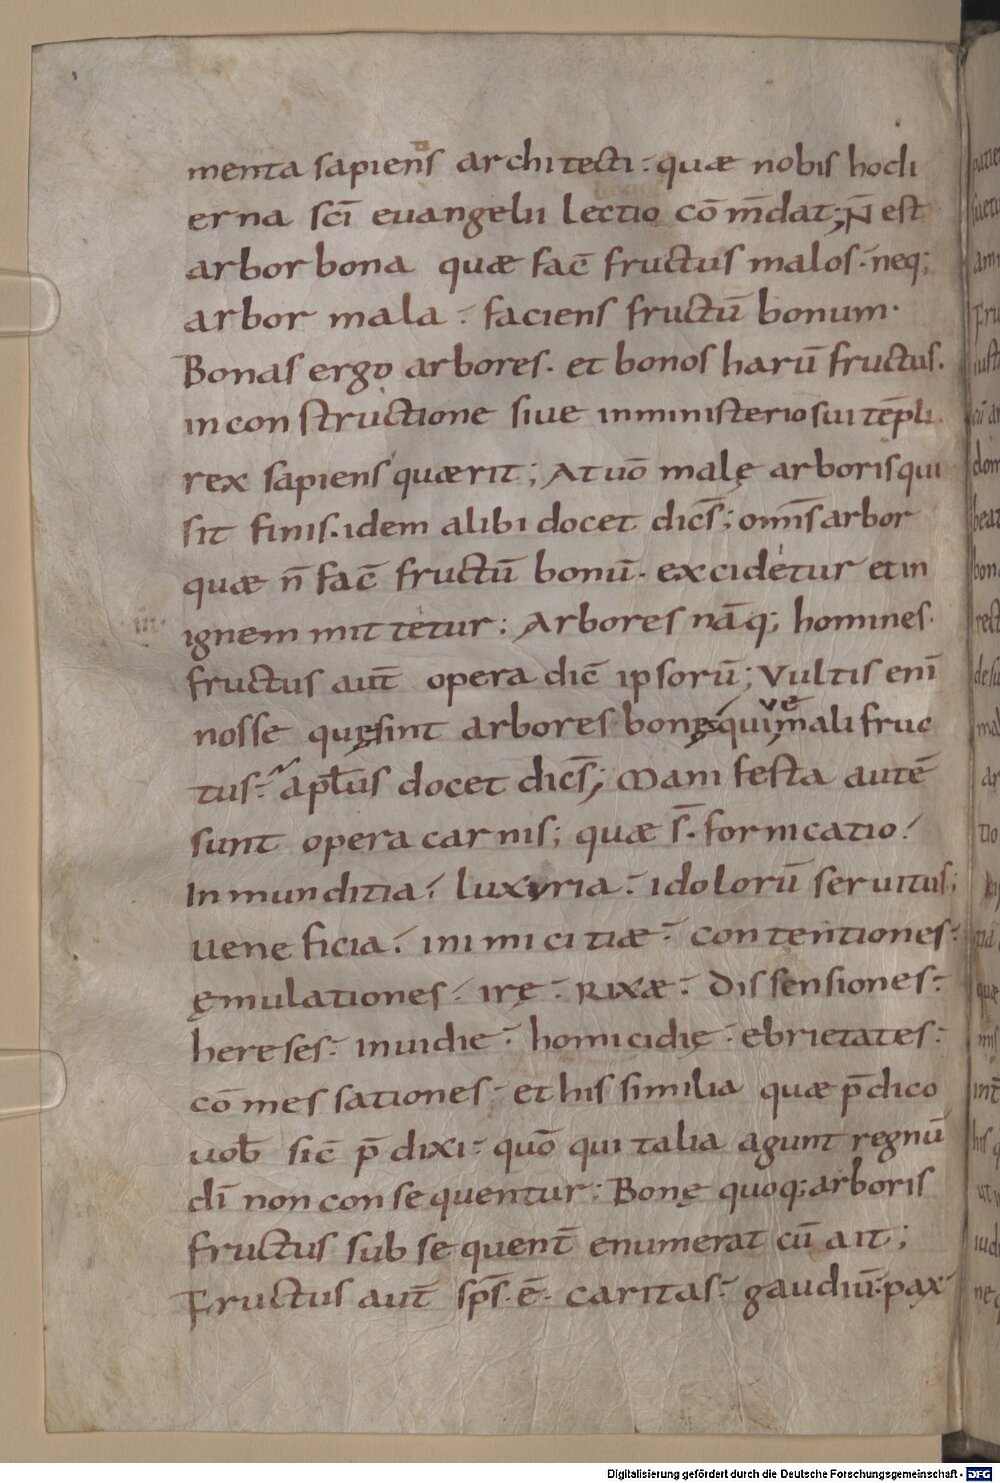 menta sapienſ architecti · quæ nobiſ hodi
erna sc̄i euangelii lectio cō m̄dat; N̄ eſt
arbor bona quæ fac̄ fructuſ maloſ · neq;
arbor mala · facienſ fructū bonum ·
Bonaſ ergo arboreſ · et bonoſ harū fructuſ ·
in conſtructione ſiue inminiſterio ſui tēpli
rex ſapienſ quærit; At uō malę arboriſ qui
ſit finiſ · idem alibi docet dic̄ſ; om̄iſ arbor
quæ n̄ fac̄ fructū bonū · excidetur et in
ignem mittetur: Arboreſ nāq; homineſ ·
fructuſ aut̄ opera dic̄ ipſorū; Vultiſ enī
noſſe quę ſint arboreſ bonę quive mali fruc
tuſ · apl̄uſ docet dic̄ſ; Manifeſta autē
ſunt opera carniſ; quæ s̄ · fornicatio ·
Inmunditia · luxyria · idolorū ſeruituſ;
ueneficia · inimicitiæ · contentioneſ ·
ęmulationeſ · irę · rixæ · diſſenſioneſ ·
hereſeſ · inuidie · homicidię · ebrietateſ ·
cō meſſationeſ · et hiſ ſimilia quæ p̄dico
uob̄ ſic̄ p̄dixi · quō qui talia agunt regnū
dī non conſequentur: Bonę quoq; arboriſ
fructuſ ſubſequent̄ enumerat cū ait;
Fructuſ aut̄ ſp̄ſ · ē · caritaſ · gaudiū · pax
Digitalisierung gefördert durch die Deutsche Forschungsgemeinschaft - DFG